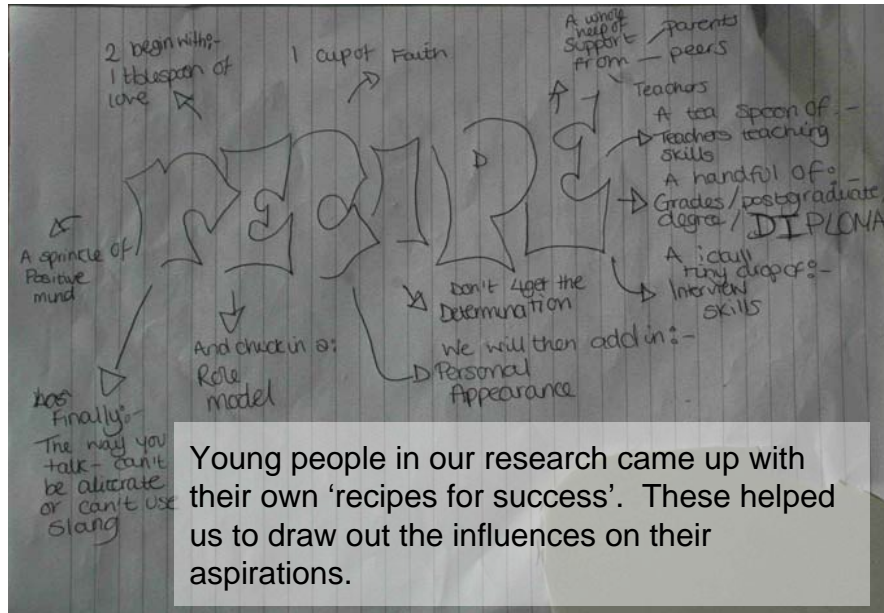 2 begin with:-
1 tblespoon of
love
1 cup of Faith
A whole
heep of
support
from
parents
peers
Teachers
A tea spoon of :-
Teachers teaching
skills
A handful of :-
Grades/postgraduate
degree / DIPLOMA
A
tiny drop of :-
Interview
skills
RECIPE
A sprincle of
Positive
mind
And chuck in a:
Role
model
Don't 4get the
Determination
We will then add in :-
Personal
Appearance
Finally:-
The way you
talk - can't
be aliterate
or can't use
slang
Young people in our research came up with
their own ‘recipes for success’. These helped
us to draw out the influences on their
aspirations.